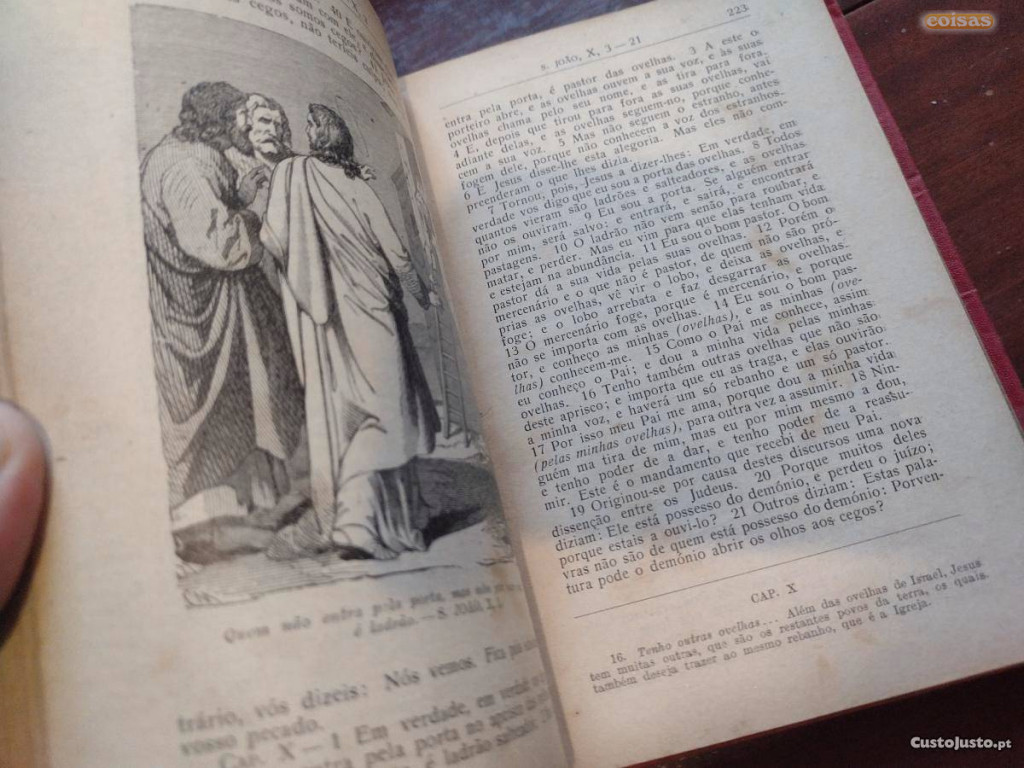 40 E
somos
cegos,
não
Quem não entra pela porta, mas não
é ladrão. — S. JOÃO X, 1
trário, vós dizeis: Nós vemos. Fica pois
vosso pecado.
CAP. X — 1 Em verdade, em verdade
entra pela porta no aprisco das
é ladrão
223
S. JOÃO, X, 3 — 21
entra pela porta, é pastor das ovelhas. 3 A este o
porteiro abre, e as ovelhas ouvem a sua voz, e às suas
ovelhas chama pelo seu nome, e as tira para fora.
4 E, depois que tirou para fora as suas ovelhas, vai
adiante delas, e as ovelhas seguem-no, porque conhe-
cem a sua voz. 5 Mas não seguem o estranho, antes
fogem dele, porque não conhecem a voz dos estranhos.
6 E Jesus disse-lhe esta alegoria. Mas eles não com-
preenderam o que lhes dizia.
7 Tornou, pois, Jesus a dizer-lhes: Em verdade, em
verdade vos digo que eu sou a porta das ovelhas. 8 Todos
quantos vieram são ladrões e salteadores, e as ovelhas
não os ouviram. 9 Eu sou a porta. Se alguém entrar
por mim, será salvo; e entrará, e sairá, e encontrará
pastagens. 10 O ladrão não vem senão para roubar, e
matar, e perder. Mas eu vim para que elas tenham vida,
e estejam na abundância. 11 Eu sou o bom pastor. O bom
pastor dá a sua vida pelas suas ovelhas. 12 Porém o
mercenário e o que não é pastor, de quem não são pró-
prias as ovelhas, vê vir o lobo, e deixa as ovelhas, e
foge; e o lobo arrebata e faz desgarrar as ovelhas.
13 O mercenário foge, porque é mercenário, e porque
não se importa com as ovelhas. 14 Eu sou o bom pas-
tor, e conheço as minhas (ovelhas), e as minhas (ove-
lhas) conhecem-me. 15 Como o Pai me conhece, assim
eu conheço o Pai; e dou a minha vida pelas minhas
ovelhas. 16 Tenho também outras ovelhas que não são
deste aprisco; e importa que eu as traga, e elas ouvirão
a minha voz, e haverá um só rebanho e um só pastor.
17 Por isso meu Pai me ama, porque dou a minha vida
(pelas minhas ovelhas), para outra vez a assumir. 18 Nin-
guém ma tira de mim, mas eu por mim mesmo a dou,
e tenho poder de a dar, e tenho poder de a reassu-
mir. Este é o mandamento que recebi de meu Pai.
19 Originou-se por causa destes discursos uma nova
dissenção entre os Judeus. 20 Porque muitos deles
diziam: Ele está possesso do demónio, e perdeu o juízo;
porque estais a ouvi-lo? 21 Outros diziam: Estas pala-
vras não são de quem está possesso do demónio: Porven-
tura pode o demónio abrir os olhos aos cegos?
CAP. X
16. Tenho outras ovelhas... Além das ovelhas de Israel, Jesus
tem muitas outras, que são os restantes povos da terra, os quais
também deseja trazer ao mesmo rebanho, que é a Igreja.
coisas
CustoJusto.pt